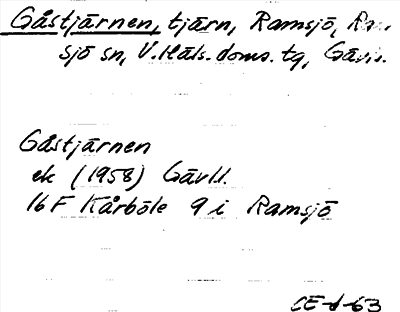 Gåstjärnen, tjärn, Ramsjö,
sjö sn, V. Häls. doms. tg, Gävl.
Gåstjärnen
ek (1958) Gävl.l.
16F Kårböle 9 i Ramsjö
CE-d-63